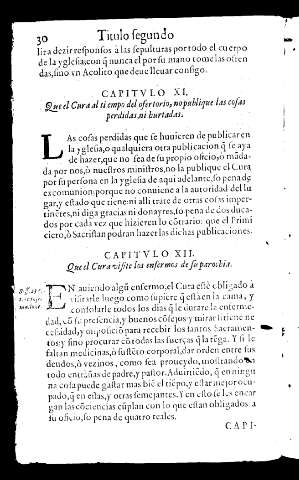 30 Titulo segundo
lir a dezir responsos à las sepulturas por todo el cuerpo
de la yglesia, con q̃ nunca el por su mano tome las ofren
das, sino vn Acolito que deue lleuar consigo.
CAPITVLO XI.
Que el Cura al tiempo del ofertorio, no publique las cosas
perdidas, ni hurtadas.
LAs cosas perdidas que se huuieren de publicar en
la yglesia, o qualquiera otra publicacion q̃ se aya
de hazer, que no sea de su propio oficio, o mãda-
da por nos, ò nuestros ministros, no la publique el Cura
por su persona en la yglesia de aqui adelante, so pena de
excomunion: porque no conuiene a la autoridad del lu
gar, y estado que tiene: ni alli trate de otras cosas imper-
tinẽtes, ni diga gracias ni donayres, so pena de dos duca-
dos por cada vez que hizieren lo cõtrario: que el Primi
ciero, ò Sacristan podran hazer las dichas publicaciones.
CAPITVLO XII.
Que el Cura visite los enfermos de su parochia.
EN auiendo algũ enfermo, el Cura estè obligado à
visitarle luego como supiere q̃ està en la cama, y
consolarle todos los dias q̃ le durare la enferme-
dad, cõ su presencia, y buenos cõsejos y mirar si tiene ne
cessidad, y disposiciõ para recebir los santos Sacramen-
tos: y sino procurar cõ todas las fuerças q̃ la tẽga. Y si le
faltan medicinas, ò sustẽto corporal, dar orden entre sus
deudos, ò vezinos, como sea proueydo, mostrando en
todo entrañas de padre, y pastor. Aduirtiẽdo, q̃ en ningu
na cosa puede gastar mas biẽ el tiẽpo, y estar mejor ocu-
pado, q̃ en estas, y otras semejantes. Y en esto se les encar
gan las cõciencias cũplan con lo que estan obligados a
su oficio, so pena de quatro reales.
CAPI-